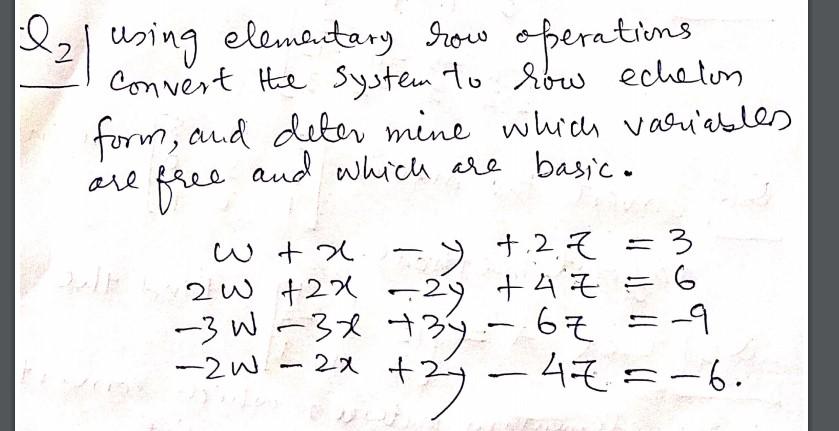 Q2| using elementary row operations
Convert the System to row echelon
form, and determine which variables
are free and which are basic.
w + x - y + 2z = 3
2w + 2x - 2y + 4z = 6
-3w - 3x + 3y - 6z = -9
-2w - 2x + 2y - 4z = -6.